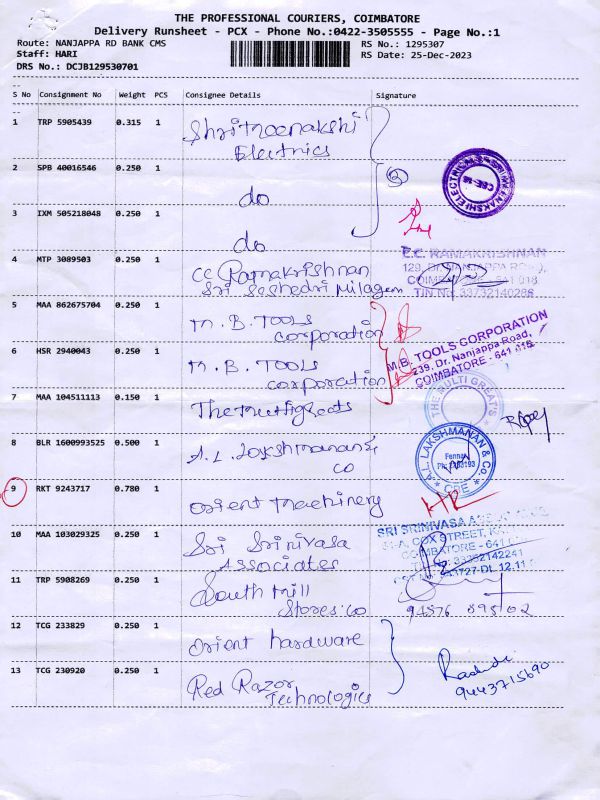 THE PROFESSIONAL COURIERS, COIMBATORE
Delivery Runsheet - PCX - Phone No.:0422-3505555 - Page No.:1
Route: NANJAPPA RD BANK CMS
RS No.: 1295307
Staff: HARI
RS Date: 25-Dec-2023
DRS No.: DCJB129530701
S No Consignment No Weight PCS Consignee Details Signature
1 TRP 5905439 0.315 1 Shrimeenakshi
Electrics
2 SPB 40016546 0.250 1
do
3 IXM 505218048 0.250 1
do
4 MTP 3089503 0.250 1 CC Ramakrishnan
Sri Seshedri Milagem
C.C. RAMAKRISHNAN
COIMBATORE - 641 018.
TIN No: 33732140286
5 MAA 862675704 0.250 1 M. B. TOOLS
corporation
6 HSR 2940043 0.250 1 M. B. TOOLS
corporation
M.B. TOOLS CORPORATION
239, Dr. Nanjappa Road,
COIMBATORE - 641 018
7 MAA 104511113 0.150 1 Themultigreats
THE MULTI GREATS
8 BLR 1600993525 0.500 1 A. L. Lakshmanan &
co
A.L. LAKSHMANAN & Co.
CBE
9 RKT 9243717 0.780 1
orient machinery
10 MAA 103029325 0.250 1 Sri Srinivasa
Associates
SRI SRINIVASA
COX STREET,
COIMBATORE - 641
33362142241
11 TRP 5908269 0.250 1 South Mill
Stores.co
94876 89502
12 TCG 233829 0.250 1
orient hardware
13 TCG 230920 0.250 1 Red Razor
Technologies
9443715690